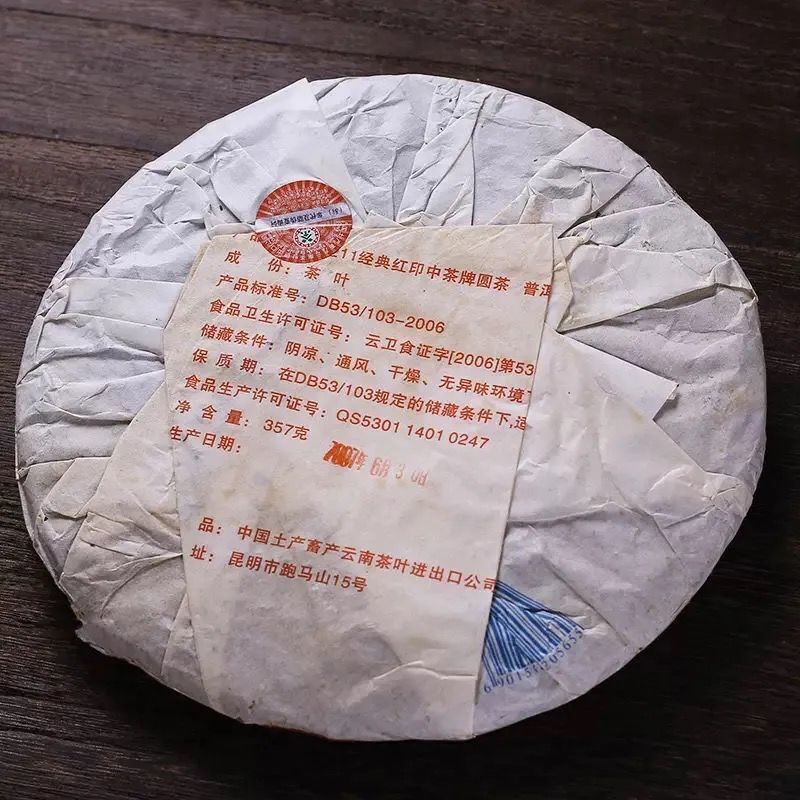 11经典红印中茶牌圆茶 普洱
成 份: 茶 叶
产品标准号: DB53/103-2006
食品卫生许可证号: 云卫食证字[2006]第53
储藏条件: 阴凉、通风、干燥、无异味环境
保 质 期: 在DB53/103规定的储藏条件下,适
食品生产许可证号: QS5301 1401 0247
净 含 量: 357克
生产日期:
2007年 6月 3 0日
品: 中国土产畜产云南茶叶进出口公司
址: 昆明市跑马山15号